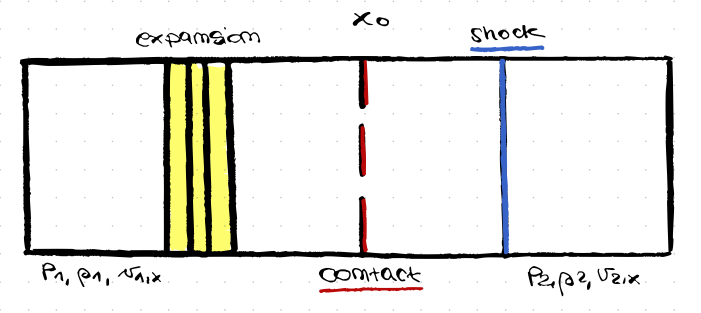 x₀
expansion
shock
P₁, ρ₁, v₁,x
contact
P₂, ρ₂, v₂,x